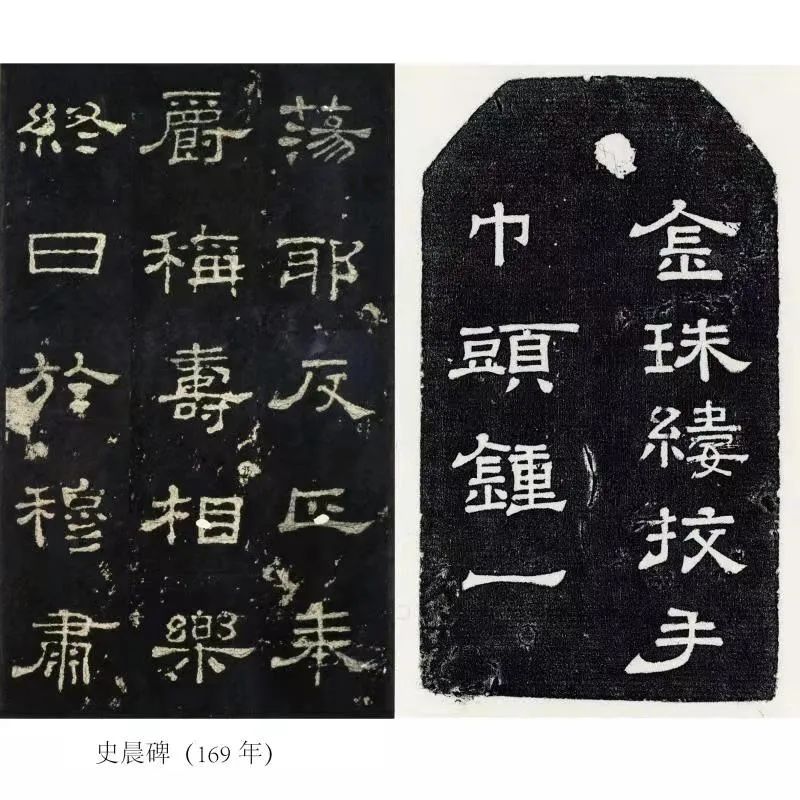 蕩耶反正奉
爵稱壽相樂
終日於穆肅
金珠縷挍手
巾頭鍾一
史晨碑（169 年）